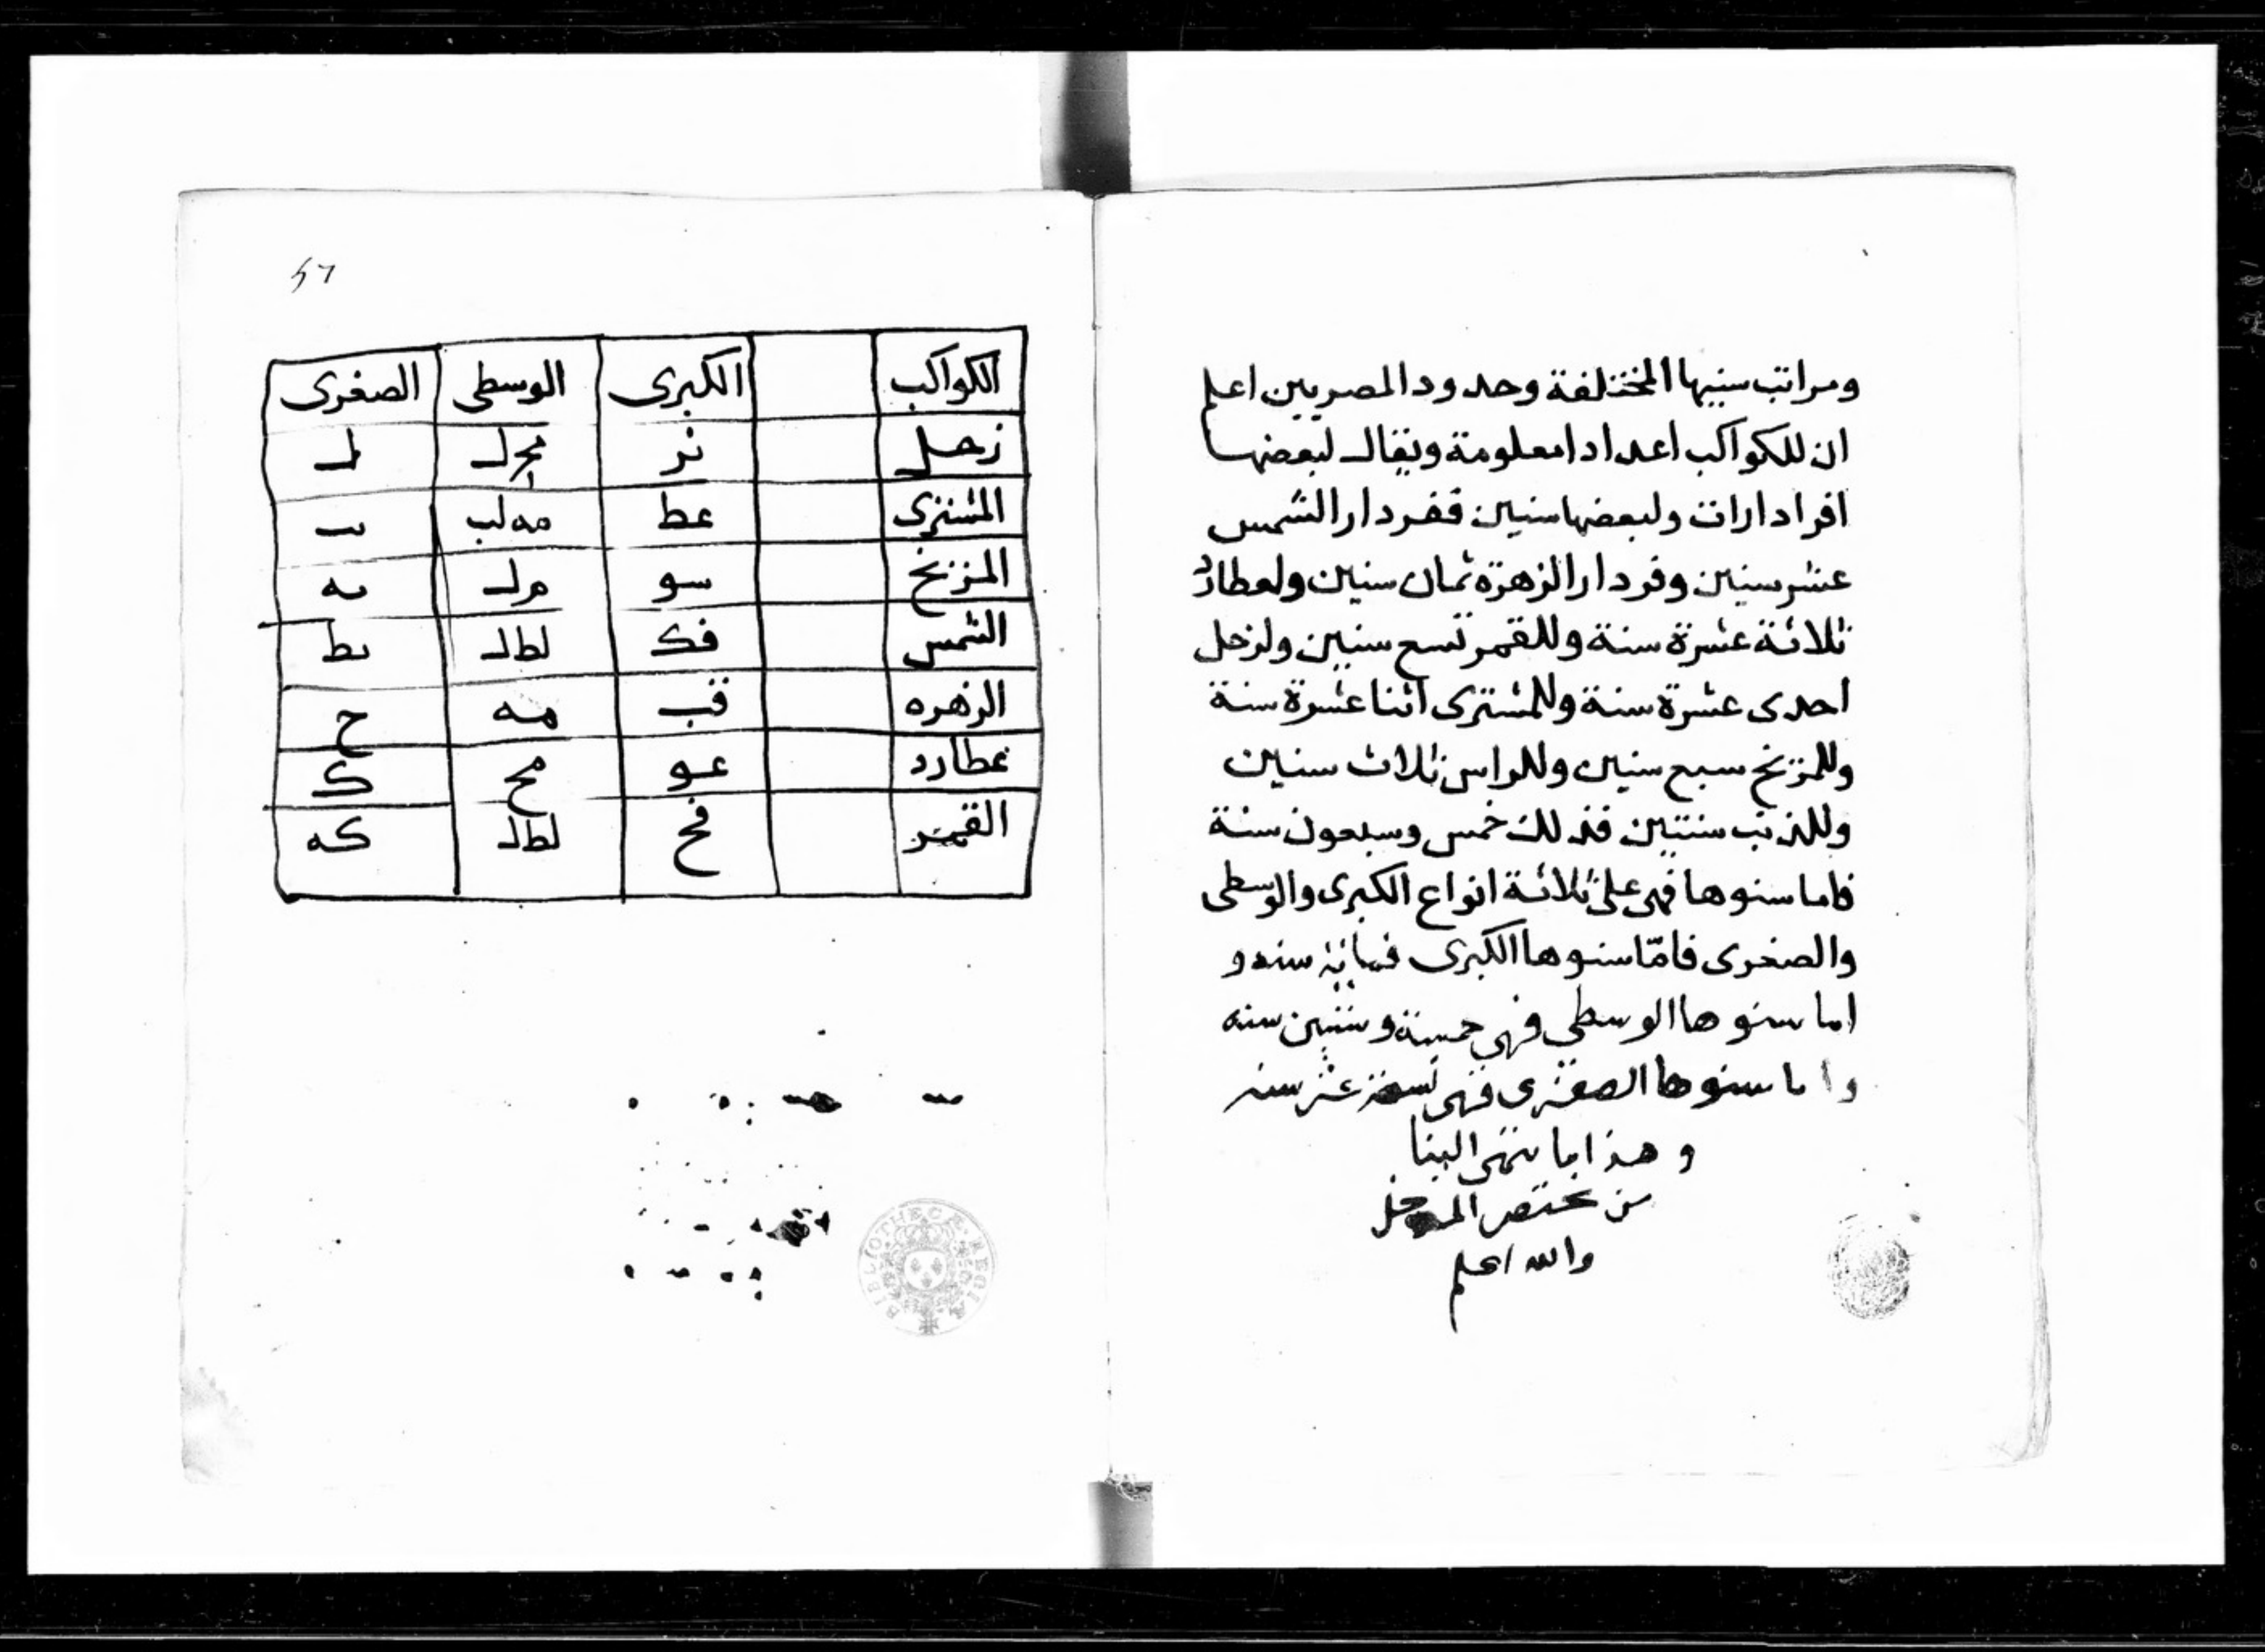 ومراتب سنيها المختلفة وحدود المصريين اعلم
ان للكواكب اعدادا معلومة ويقال لبعضها
افرادارات ولبعضها سنين ففردار الشمس
عشر سنين وفردار الزهرة ثمان سنين ولعطارد
ثلاثة عشرة سنة وللقمر تسع سنين ولزحل
احدى عشرة سنة وللمشترى اثنا عشرة سنة
وللمريخ سبع سنين وللراس ثلاث سنين
وللذنب سنتين فذلك خمس وسبعون سنة
فاما سنوها فهى على ثلاثة انواع الكبرى والوسطى
والصغرى فامّا سنوها الكبرى فماية سنه و
اما سنوها الوسطى فهى خمسة وستين سنه
واما سنوها الصغرى فهى تسعة عشر سنه
وهذا ما انتهى الينا
من مختصر المدخل
والله اعلم
57
الكواكب الكبرى الوسطى الصغرى
زحل نز مح ل ل
المشترى عط مه لب ىب
المريخ سو م ل ىه
الشمس قك لط ل ىط
الزهره فب مه ح
عطارد عو مح ك
القمر قح لط ل كه
BIBLIOTHECÆ REGIÆ